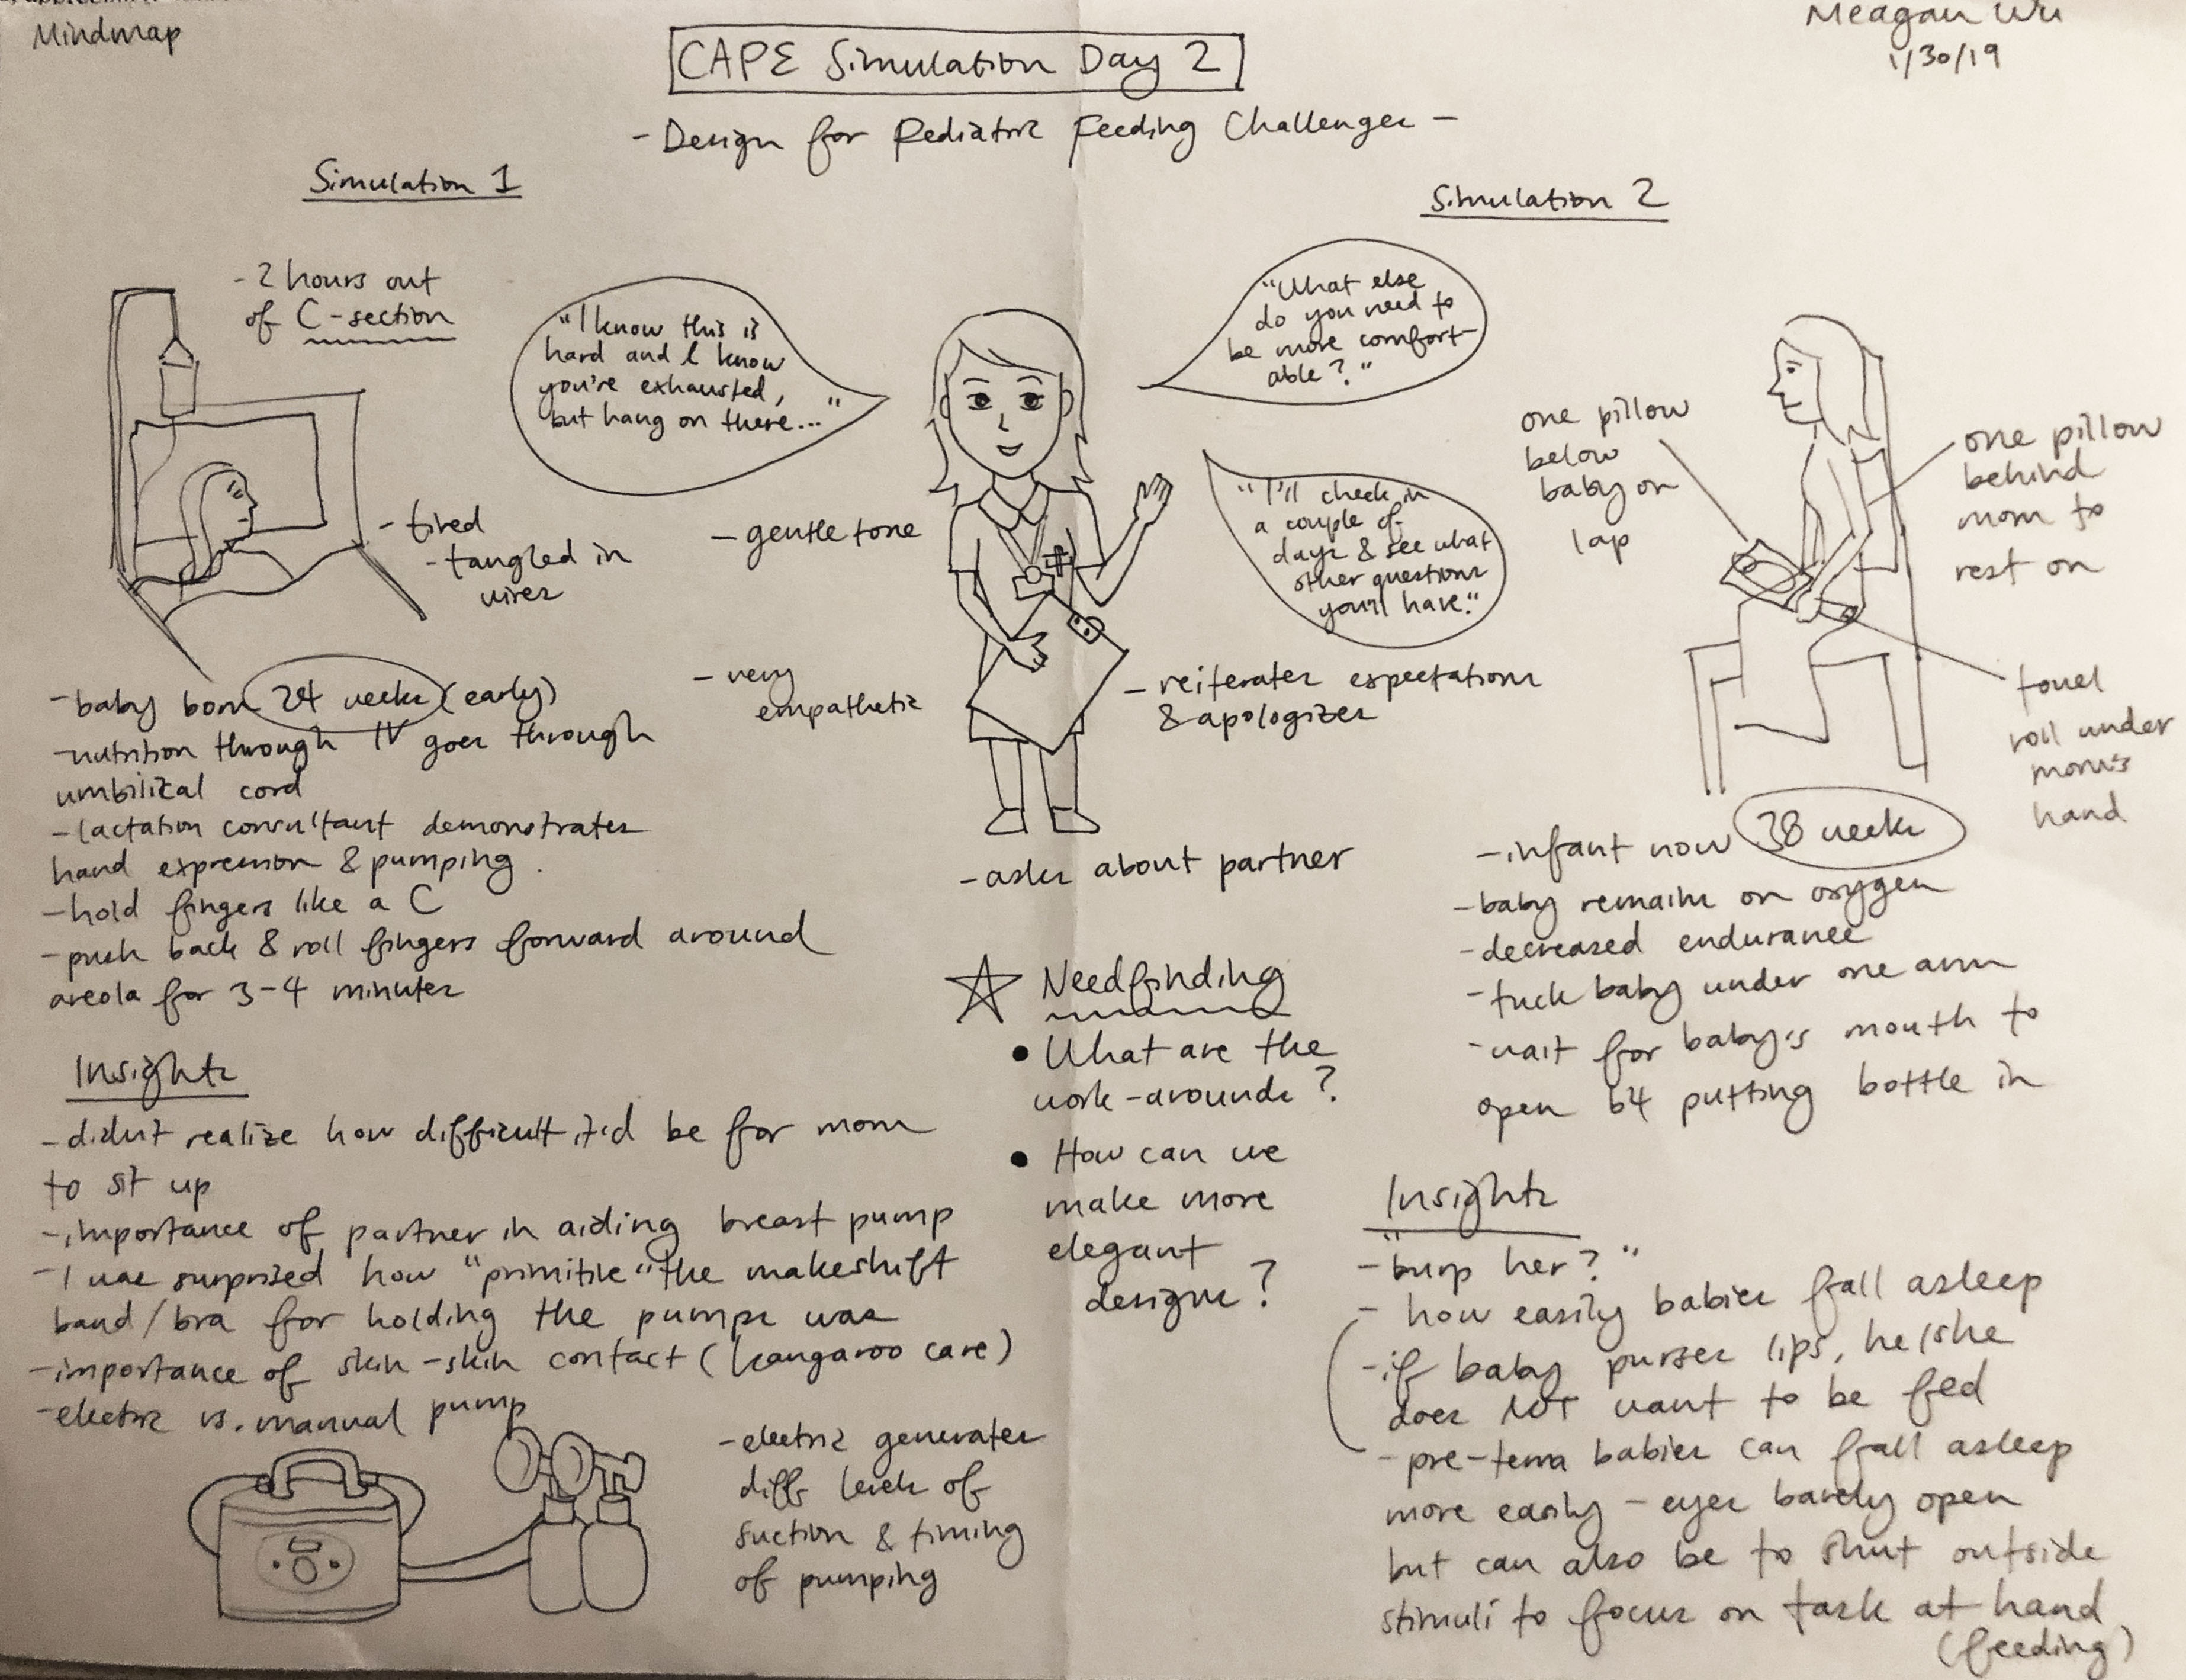 Mindmap
Meagan Wu
1/30/19
CAPE Simulation Day 2
- Design for Pediatric Feeding Challenges -
Simulation 1
- 2 hours out
of C-section
"I know this is
hard and I know
you're exhausted,
but hang on there..."
- tired
- tangled in
wires
- baby born 24 weeks (early)
- nutrition through IV goes through
umbilical cord
- lactation consultant demonstrates
hand expression & pumping.
- hold fingers like a C
- push back & roll fingers forward around
areola for 3-4 minutes
Insights
- didn't realize how difficult it'd be for mom
to sit up
- importance of partner in aiding breast pump
- I was surprised how "primitive" the makeshift
band/bra for holding the pumps was
- importance of skin-skin contact (kangaroo care)
- electric vs. manual pump
- electric generates
diff levels of
suction & timing
of pumping
- gentle tone
- very
empathetic
"What else
do you need to
be more comfort-
able?"
"I'll check in
a couple of
days & see what
other questions
you'll have."
- reiterates expectations
& apologizes
- asks about partner
Needfinding
• What are the
work-arounds?
• How can we
make more
elegant
designs?
Simulation 2
one pillow
below
baby on
lap
one pillow
behind
mom to
rest on
towel
roll under
mom's
hand
- infant now 38 weeks
- baby remains on oxygen
- decreased endurance
- tuck baby under one arm
- wait for baby's mouth to
open b4 putting bottle in
Insights
- "burp her?"
- how easily babies fall asleep
- if baby purses lips, he/she
does NOT want to be fed
- pre-term babies can fall asleep
more easily - eyes barely open
but can also be to shut outside
stimuli to focus on task at hand
(feeding)